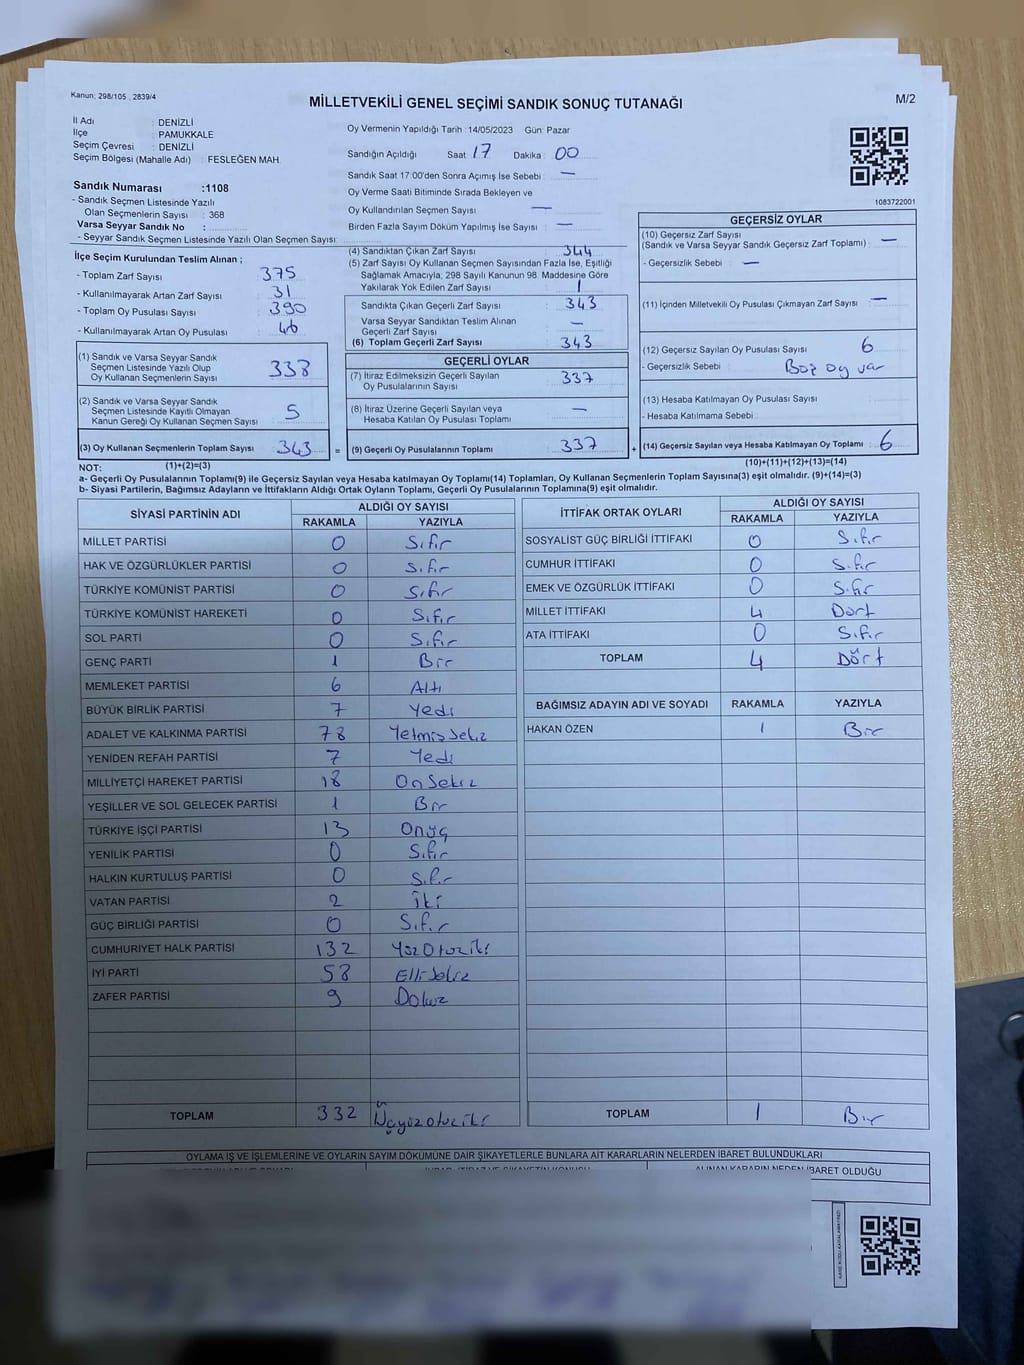 Kanun; 298/105 , 2839/4
MİLLETVEKİLİ GENEL SEÇİMİ SANDIK SONUÇ TUTANAĞI
M/2
İl Adı : DENİZLİ
İlçe : PAMUKKALE
Seçim Çevresi : DENİZLİ
Seçim Bölgesi (Mahalle Adı) : FESLEĞEN MAH.
Oy Vermenin Yapıldığı Tarih :14/05/2023 Gün: Pazar
Sandığın Açıldığı Saat: 17 Dakika : 00
Sandık Saat 17:00'den Sonra Açımış İse Sebebi : —
Oy Verme Saati Bitiminde Sırada Bekleyen ve
Oy Kullandırılan Seçmen Sayısı : —
Birden Fazla Sayım Döküm Yapılmış İse Sayısı : —
1083722001
Sandık Numarası :1108
- Sandık Seçmen Listesinde Yazılı
Olan Seçmenlerin Sayısı : 368
Varsa Seyyar Sandık No :
- Seyyar Sandık Seçmen Listesinde Yazılı Olan Seçmen Sayısı:
İlçe Seçim Kurulundan Teslim Alınan ;
- Toplam Zarf Sayısı : 375
- Kullanılmayarak Artan Zarf Sayısı : 31
- Toplam Oy Pusulası Sayısı : 390
- Kullanılmayarak Artan Oy Pusulası : 46
(1) Sandık ve Varsa Seyyar Sandık
Seçmen Listesinde Yazılı Olup
Oy Kullanan Seçmenlerin Sayısı : 338
(2) Sandık ve Varsa Seyyar Sandık
Seçmen Listesinde Kayıtlı Olmayan
Kanun Gereği Oy Kullanan Seçmen Sayısı : 5
(3) Oy Kullanan Seçmenlerin Toplam Sayısı : 343
(1)+(2)=(3)
(4) Sandıktan Çıkan Zarf Sayısı : 344
(5) Zarf Sayısı Oy Kullanan Seçmen Sayısından Fazla İse, Eşitliği
Sağlamak Amacıyla; 298 Sayılı Kanunun 98. Maddesine Göre
Yakılarak Yok Edilen Zarf Sayısı : 1
Sandıkta Çıkan Geçerli Zarf Sayısı : 343
Varsa Seyyar Sandıktan Teslim Alınan
Geçerli Zarf Sayısı : —
(6) Toplam Geçerli Zarf Sayısı : 343
GEÇERLİ OYLAR
(7) İtiraz Edilmeksizin Geçerli Sayılan
Oy Pusulalarının Sayısı : 337
(8) İtiraz Üzerine Geçerli Sayılan veya
Hesaba Katılan Oy Pusulası Toplamı : —
= (9) Geçerli Oy Pusulalarının Toplamı : 337
GEÇERSİZ OYLAR
(10) Geçersiz Zarf Sayısı
(Sandık ve Varsa Seyyar Sandık Geçersiz Zarf Toplamı) : —
- Geçersizlik Sebebi : —
(11) İçinden Milletvekili Oy Pusulası Çıkmayan Zarf Sayısı : —
(12) Geçersiz Sayılan Oy Pusulası Sayısı : 6
- Geçersizlik Sebebi : Boş oy var
(13) Hesaba Katılmayan Oy Pusulası Sayısı :
- Hesaba Katılmama Sebebi :
+ (14) Geçersiz Sayılan veya Hesaba Katılmayan Oy Toplamı : 6
(10)+(11)+(12)+(13)=(14)
NOT:
a- Geçerli Oy Pusulalarının Toplamı(9) ile Geçersiz Sayılan veya Hesaba katılmayan Oy Toplamı(14) Toplamları, Oy Kullanan Seçmenlerin Toplam Sayısına(3) eşit olmalıdır. (9)+(14)=(3)
b- Siyasi Partilerin, Bağımsız Adayların ve İttifakların Aldığı Ortak Oyların Toplamı, Geçerli Oy Pusulalarının Toplamına(9) eşit olmalıdır.
SİYASİ PARTİNİN ADI ALDIĞI OY SAYISI
RAKAMLA YAZIYLA
MİLLET PARTİSİ 0 Sıfır
HAK VE ÖZGÜRLÜKLER PARTİSİ 0 Sıfır
TÜRKİYE KOMÜNİST PARTİSİ 0 Sıfır
TÜRKİYE KOMÜNİST HAREKETİ 0 Sıfır
SOL PARTİ 0 Sıfır
GENÇ PARTİ 1 Bir
MEMLEKET PARTİSİ 6 Altı
BÜYÜK BİRLİK PARTİSİ 7 Yedi
ADALET VE KALKINMA PARTİSİ 78 Yetmiş sekiz
YENİDEN REFAH PARTİSİ 7 Yedi
MİLLİYETÇİ HAREKET PARTİSİ 18 On sekiz
YEŞİLLER VE SOL GELECEK PARTİSİ 1 Bir
TÜRKİYE İŞÇİ PARTİSİ 13 Onüç
YENİLİK PARTİSİ 0 Sıfır
HALKIN KURTULUŞ PARTİSİ 0 Sıfır
VATAN PARTİSİ 2 İki
GÜÇ BİRLİĞİ PARTİSİ 0 Sıfır
CUMHURİYET HALK PARTİSİ 132 Yüz Otuz iki
İYİ PARTİ 58 Elli sekiz
ZAFER PARTİSİ 9 Dokuz
TOPLAM 332 Üçyüz otuz iki
İTTİFAK ORTAK OYLARI ALDIĞI OY SAYISI
RAKAMLA YAZIYLA
SOSYALİST GÜÇ BİRLİĞİ İTTİFAKI 0 Sıfır
CUMHUR İTTİFAKI 0 Sıfır
EMEK VE ÖZGÜRLÜK İTTİFAKI 0 Sıfır
MİLLET İTTİFAKI 4 Dört
ATA İTTİFAKI 0 Sıfır
TOPLAM 4 Dört
BAĞIMSIZ ADAYIN ADI VE SOYADI RAKAMLA YAZIYLA
HAKAN ÖZEN 1 Bir
TOPLAM 1 Bir
OYLAMA İŞ VE İŞLEMLERİNE VE OYLARIN SAYIM DÖKÜMÜNE DAİR ŞİKAYETLERLE BUNLARA AİT KARARLARIN NELERDEN İBARET BULUNDUKLARI
ALINAN KARARIN NEDEN İBARET OLDUĞU